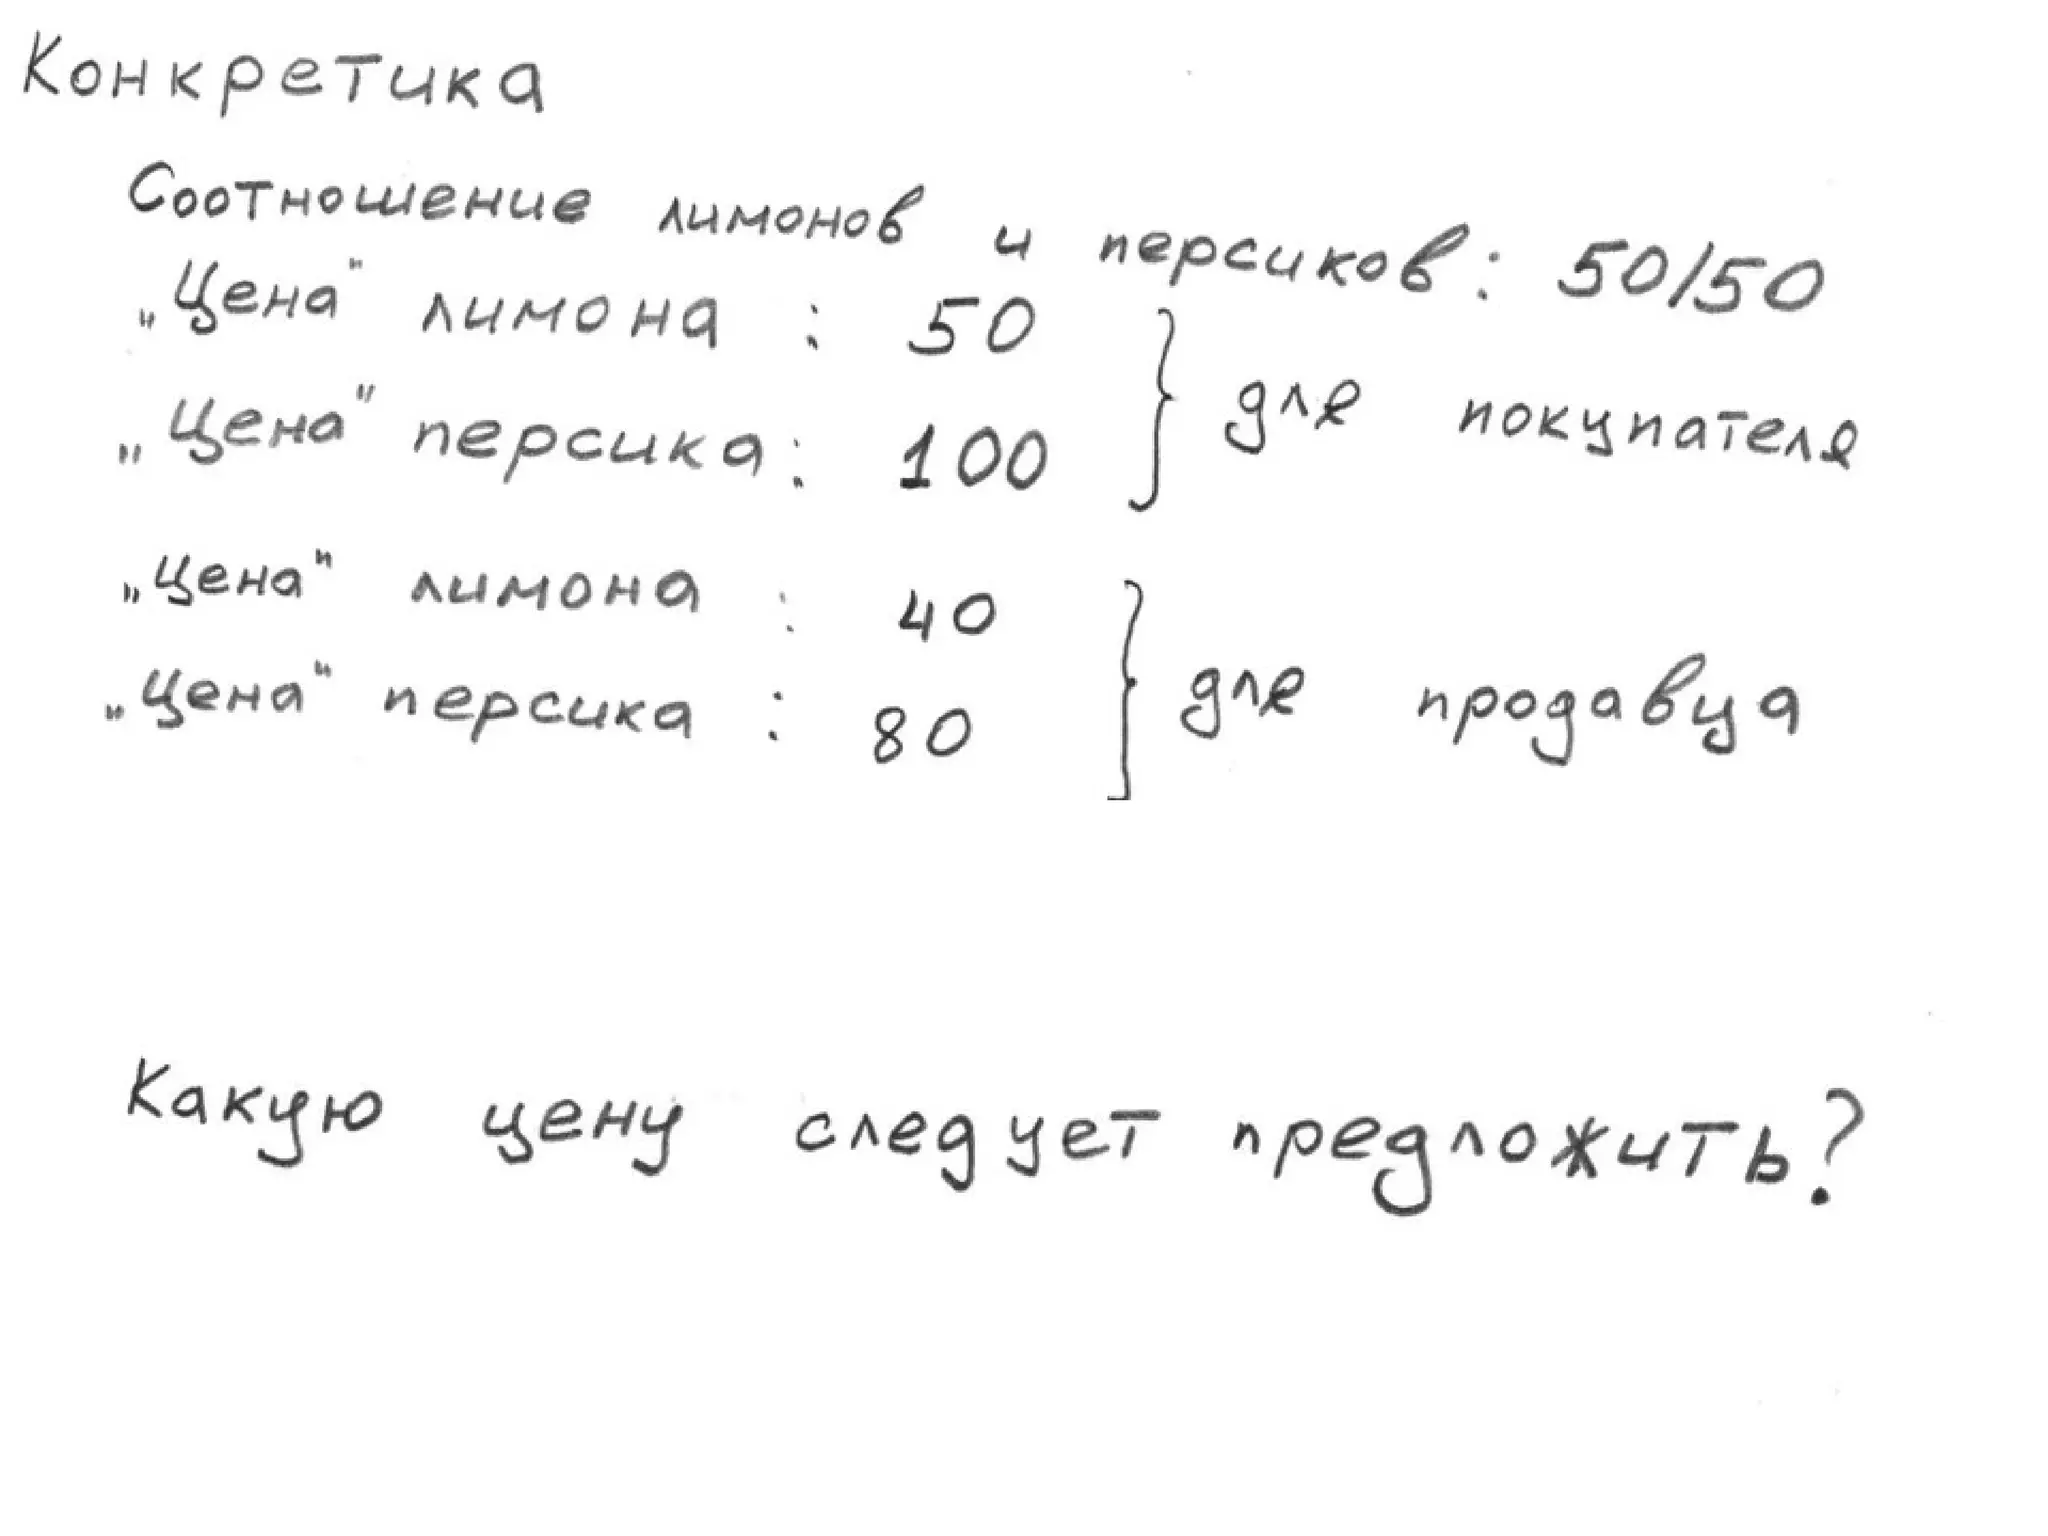 Конкретика
Соотношение лимонов и персиков: 50/50
„Цена" лимона : 50
„Цена" персика: 100
для покупателя
„Цена" лимона : 40
„Цена" персика : 80
для продавца
Какую цену следует предложить?